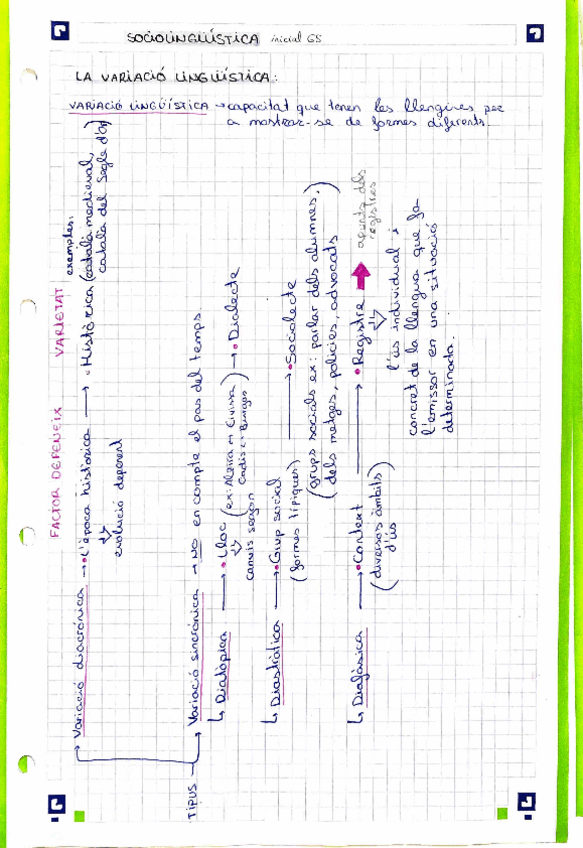 SOCIOLINGÜÍSTICA inicial GS
LA VARIACIÓ LINGÜÍSTICA:
VARIACIÓ LINGÜÍSTICA → capacitat que tenen les llengües per
a mostrar-se de formes diferents.
FACTOR DEFENEIX VARIETAT exemples:
TIPUS
→ Variació diacrònica → • L'època històrica → • Històrica (català medieval,
català del segle d'Or)
evolució depenent
→ Variació sincrònica → NO en compte el pas del temps.
↳ Diatòpica → • Lloc (ex: Alzira ↔ Eivissa
Cadis ↔ Burgos) → • Dialecte
canvis segons
↳ Diastràtica → • Grup social → • Sociolecte
(formes típiques)
(grups socials ex: parlar dels alumnes,
dels metges, policies, advocats)
↳ Diafàsica → • Context → • Registre → apunts dels
registres
(diversos àmbits
d'ús)
l'ús individual i
concret de la llengua que fa
l'emissor en una situació
determinada.